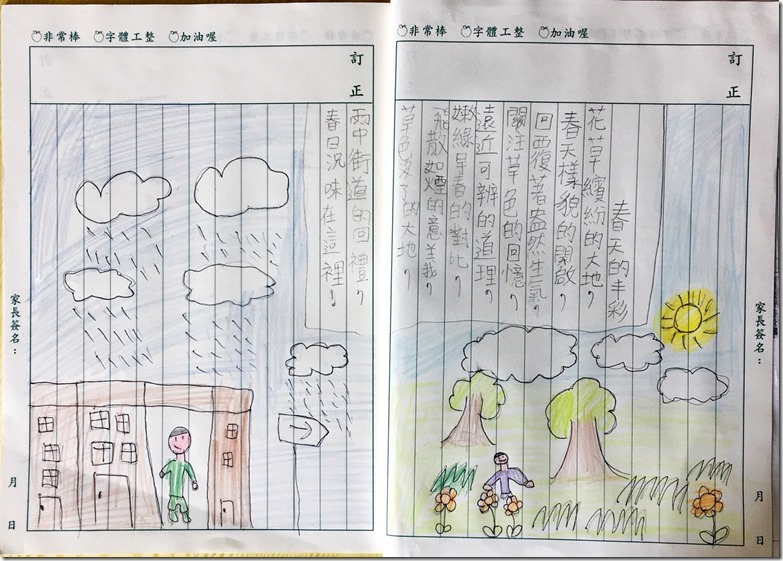 非常棒 字體工整 加油喔
訂正
家長簽名：
月 日
春天的丰彩
花草繽紛的大地，
春天樣貌的開啟，
回復著盎然生氣，
關注草色的回憶，
遠近可辨的道理。
嫩綠呈的對比，
飛散如煙的意
草色的大地，
非常棒 字體工整 加油喔
訂正
雨中街道的回禮，
春日況味在這裡！
家長簽名：
月 日